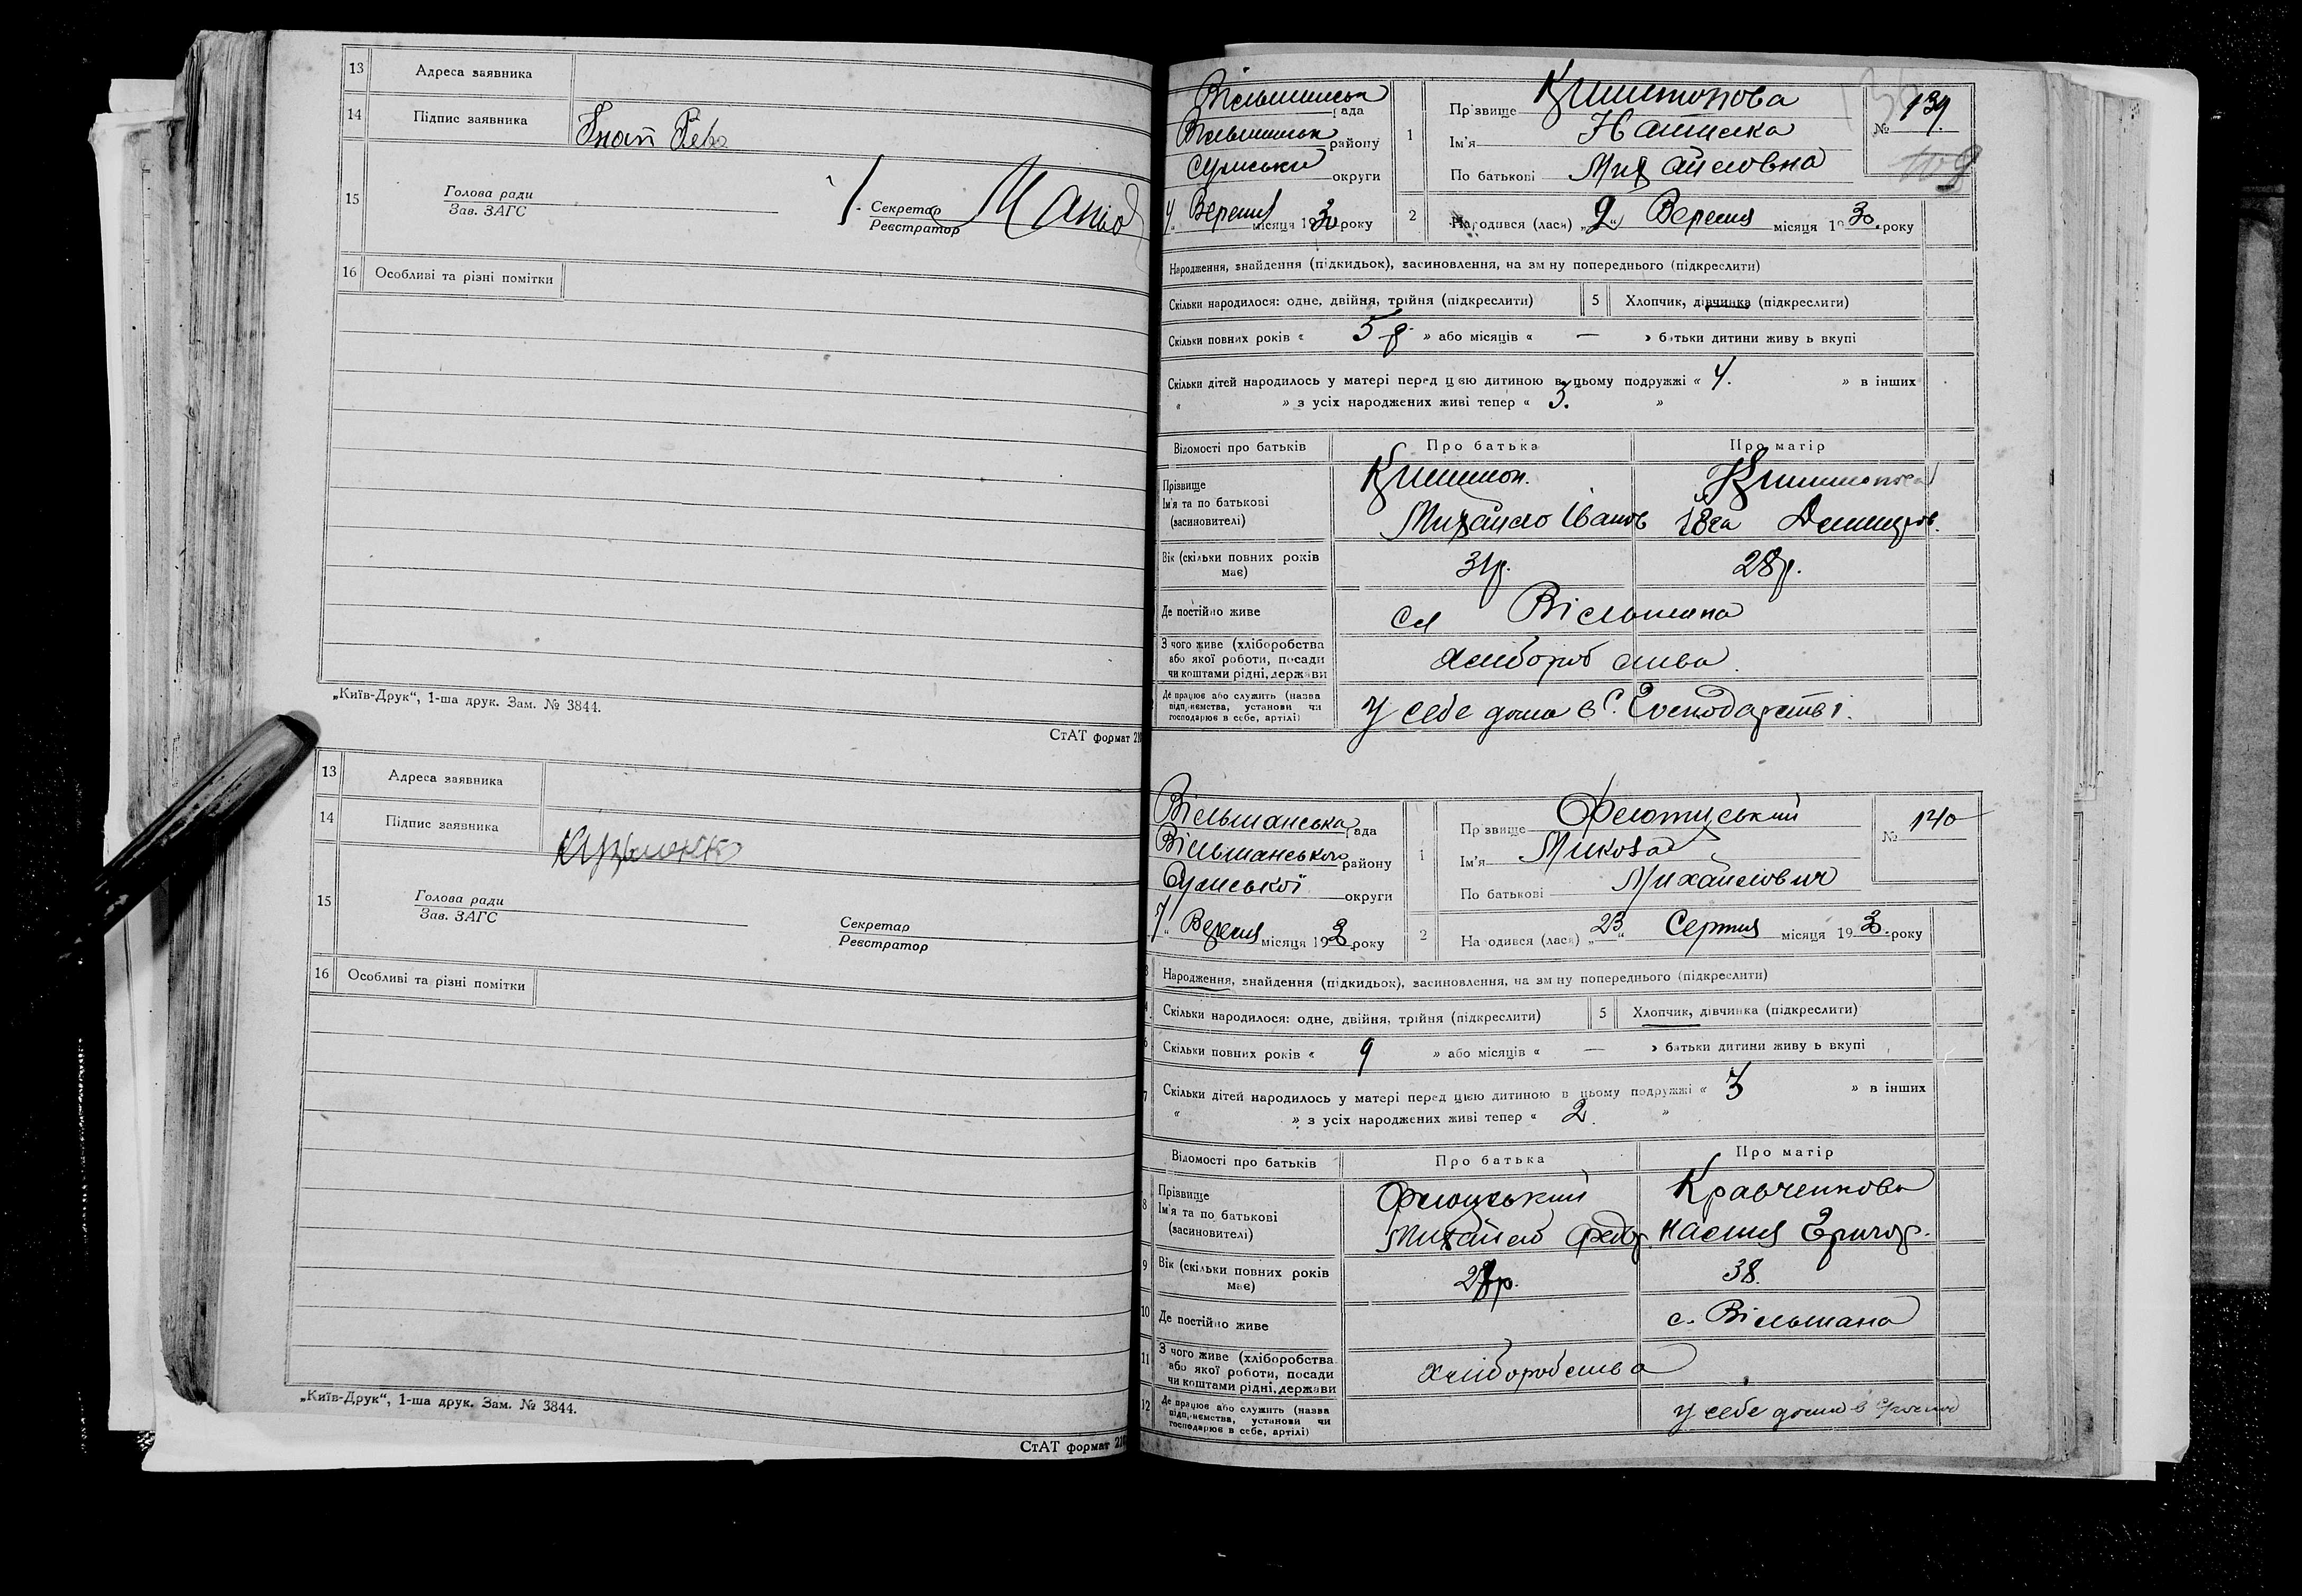 13 Адреса заявника
14 Підпис заявника Гнат Рева
15 Голова ради
Зав. ЗАГС
Секретар
Реєстратор
16 Особливі та різні помітки
„Київ-Друк“, 1-ша друк. Зам. № 3844.
СтАТ формат
13 Адреса заявника
14 Підпис заявника
15 Голова ради
Зав. ЗАГС
Секретар
Реєстратор
16 Особливі та різні помітки
„Київ-Друк“, 1-ша друк. Зам. № 3844.
СтАТ формат
рада
району
округи
4 Вересня місяця 1930 року
1 Прізвище
Ім'я
По батькові Михайловна
№ 139
2 Народився (лася) „2“ Вересня місяця 1930 року
Народження, знайдення (підкидьок), засиновлення, на зміну попереднього (підкреслити)
Скільки народилося: одне, двійня, трійня (підкреслити)
5 Хлопчик, дівчинка (підкреслити)
Скільки повних років « » або місяців « — » батьки дитини живуть вкупі
Скільки дітей народилось у матері перед цією дитиною в цьому подружжі « 4. » в інших
« » з усіх народжених живі тепер « 3. »
Відомості про батьків
Про батька
Про матір
Прізвище
Ім'я та по батькові
(засиновителі)
Михайло Іванов
Вік (скільки повних років
має)
31р.
28р.
Де постійно живе
сл Вільшана
З чого живе (хліборобства
або якої роботи, посади
чи коштами рідні, держави
хлиборобсива
Де працює або служить (назва
підприємства, установи чи
господарює в себе, артілі)
у себе дома в С. Господарстві.
Вільшанська рада
Вільшанського району
Сумської округи
7 Вересня місяця 193 року
1 Прізвище
Ім'я Микола
По батькові Михайлович
№ 140
2 Народився (лася) „23“ Серпня місяця 1930 року
Народження, знайдення (підкидьок), засиновлення, на зміну попереднього (підкреслити)
Скільки народилося: одне, двійня, трійня (підкреслити)
5 Хлопчик, дівчинка (підкреслити)
Скільки повних років « 9 » або місяців « — » батьки дитини живуть вкупі
7 Скільки дітей народилось у матері перед цією дитиною в цьому подружжі « 3 » в інших
« » з усіх народжених живі тепер « 2. »
Відомості про батьків
Про батька
Про матір
8 Прізвище
Ім'я та по батькові
(засиновителі)
Кравченкова
Михайло Федор
Настя Григор.
9 Вік (скільки повних років
має)
38.
10 Де постійно живе
с. Вільшана
11 З чого живе (хліборобства
або якої роботи, посади
чи коштами рідні, держави
хліборобсива
12 Де працює або служить (назва
підприємства, установи чи
господарює в себе, артілі)
у себе дома в